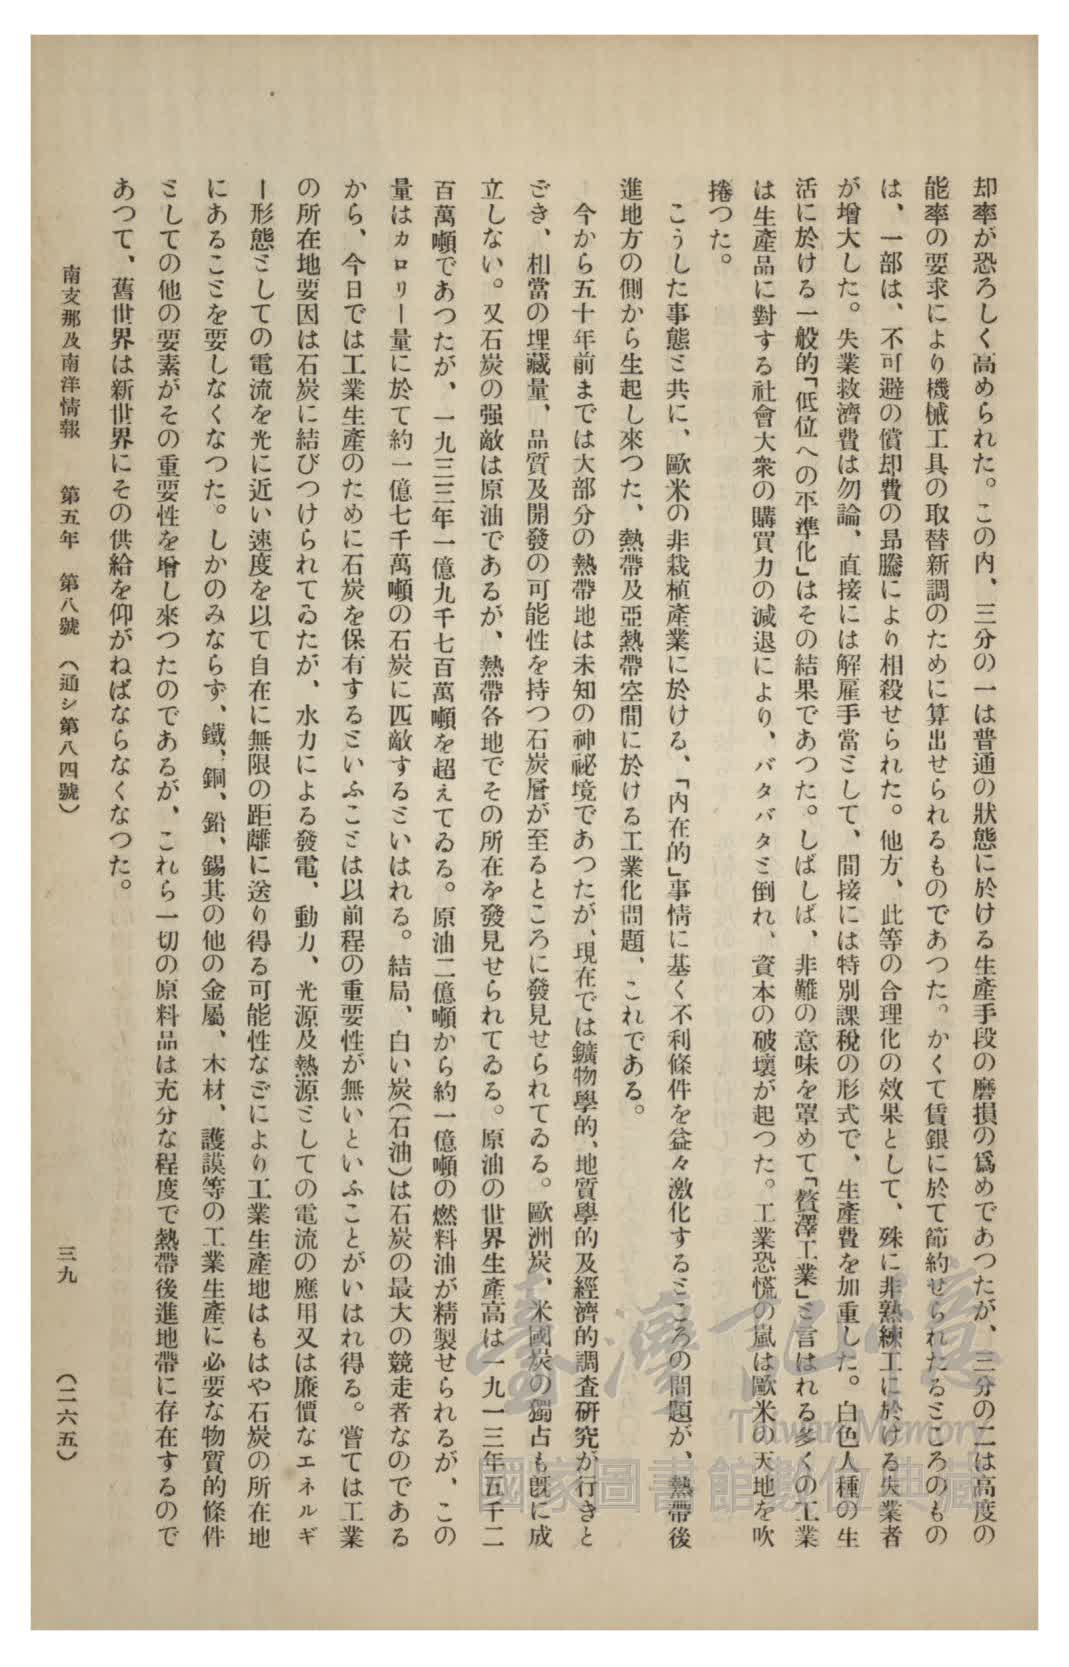 却率が恐ろしく高められた。この内、三分の一は普通の狀態に於ける生產手段の磨損の爲めであつたが、三分の二は高度の
能率の要求により機械工具の取替新調のために算出せられるものであつた。かくて賃銀に於て節約せられたるところのもの
は、一部は、不可避の償却費の昂騰により相殺せられた。他方、此等の合理化の效果として、殊に非熟練工に於ける失業者
が增大した。失業救濟費は勿論、直接には解雇手當として、間接には特別課稅の形式で、生產費を加重した。白色人種の生
活に於ける一般的「低位への平準化」はその結果であつた。しばしば、非難の意味を罩めて「贅澤工業」と言はれる多くの工業
は生產品に對する社會大衆の購買力の減退により、バタバタと倒れ、資本の破壞が起つた。工業恐慌の嵐は歐米の天地を吹
捲つた。
こうした事態と共に、歐米の非栽植產業に於ける、「內在的」事情に基く不利條件を益々激化するところの問題が、熱帶後
進地方の側から生起し來つた、熱帶及亞熱帶空間に於ける工業化問題、これである。
今から五十年前までは大部分の熱帶地は未知の神祕境であつたが、現在では鑛物學的、地質學的及經濟的調查硏究が行きと
どき、相當の埋藏量、品質及開發の可能性を持つ石炭層が至るところに發見せられてゐる。歐洲炭、米國炭の獨占も旣に成
立しない。又石炭の强敵は原油であるが、熱帶各地でその所在を發見せられてゐる。原油の世界生產高は一九一三年五千二
百萬噸であつたが、一九三三年一億九千七百萬噸を超えてゐる。原油二億噸から約一億噸の燃料油が精製せられるが、この
量はカロリー量に於て約一億七千萬噸の石炭に匹敵するといはれる。結局、白い炭(石油)は石炭の最大の競走者なのである
から、今日では工業生產のために石炭を保有するといふことは以前程の重要性が無いといふことがいはれ得る。嘗ては工業
の所在地要因は石炭に結びつけられてゐたが、水力による發電、動力、光源及熱源としての電流の應用又は廉價なエネルギ
ー形態としての電流を光に近い速度を以て自在に無限の距離に送り得る可能性などにより工業生產地はもはや石炭の所在地
にあることを要しなくなつた。しかのみならず、鐵、銅、鉛、錫其の他の金屬、木材、護謨等の工業生產に必要な物質的條件
としての他の要素がその重要性を增し來つたのであるが、これら一切の原料品は充分な程度で熱帶後進地帶に存在するので
あつて、舊世界は新世界にその供給を仰がねばならなくなつた。
南支那及南洋情報　第五年　第八號　(通シ第八四號)　三九　(二六五)
臺灣記憶
Taiwan Memory
國家圖書館數位典藏